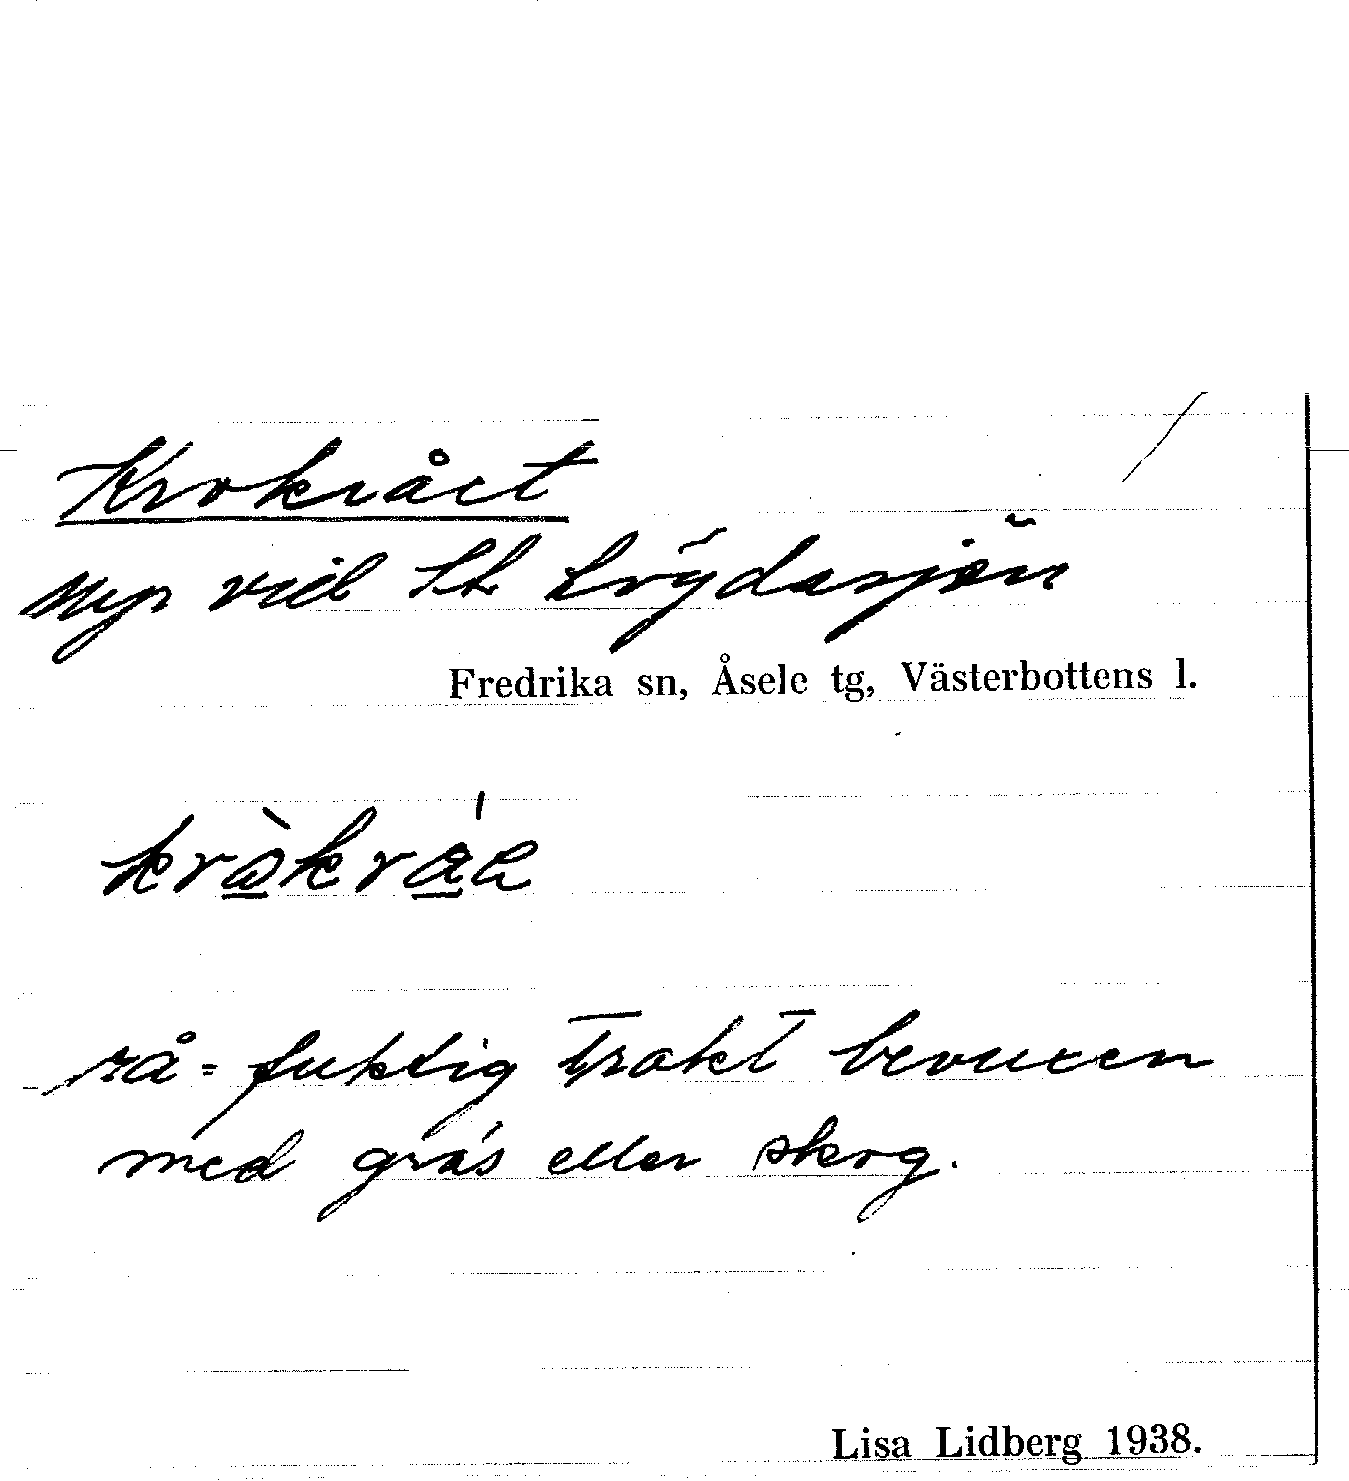 Krokrået
myr vid St Lögdasjön
Fredrika sn, Åsele tg, Västerbottens l.
rå = fuktig trakt bevuxen
med gräs eller skog.
Lisa Lidberg 1938.